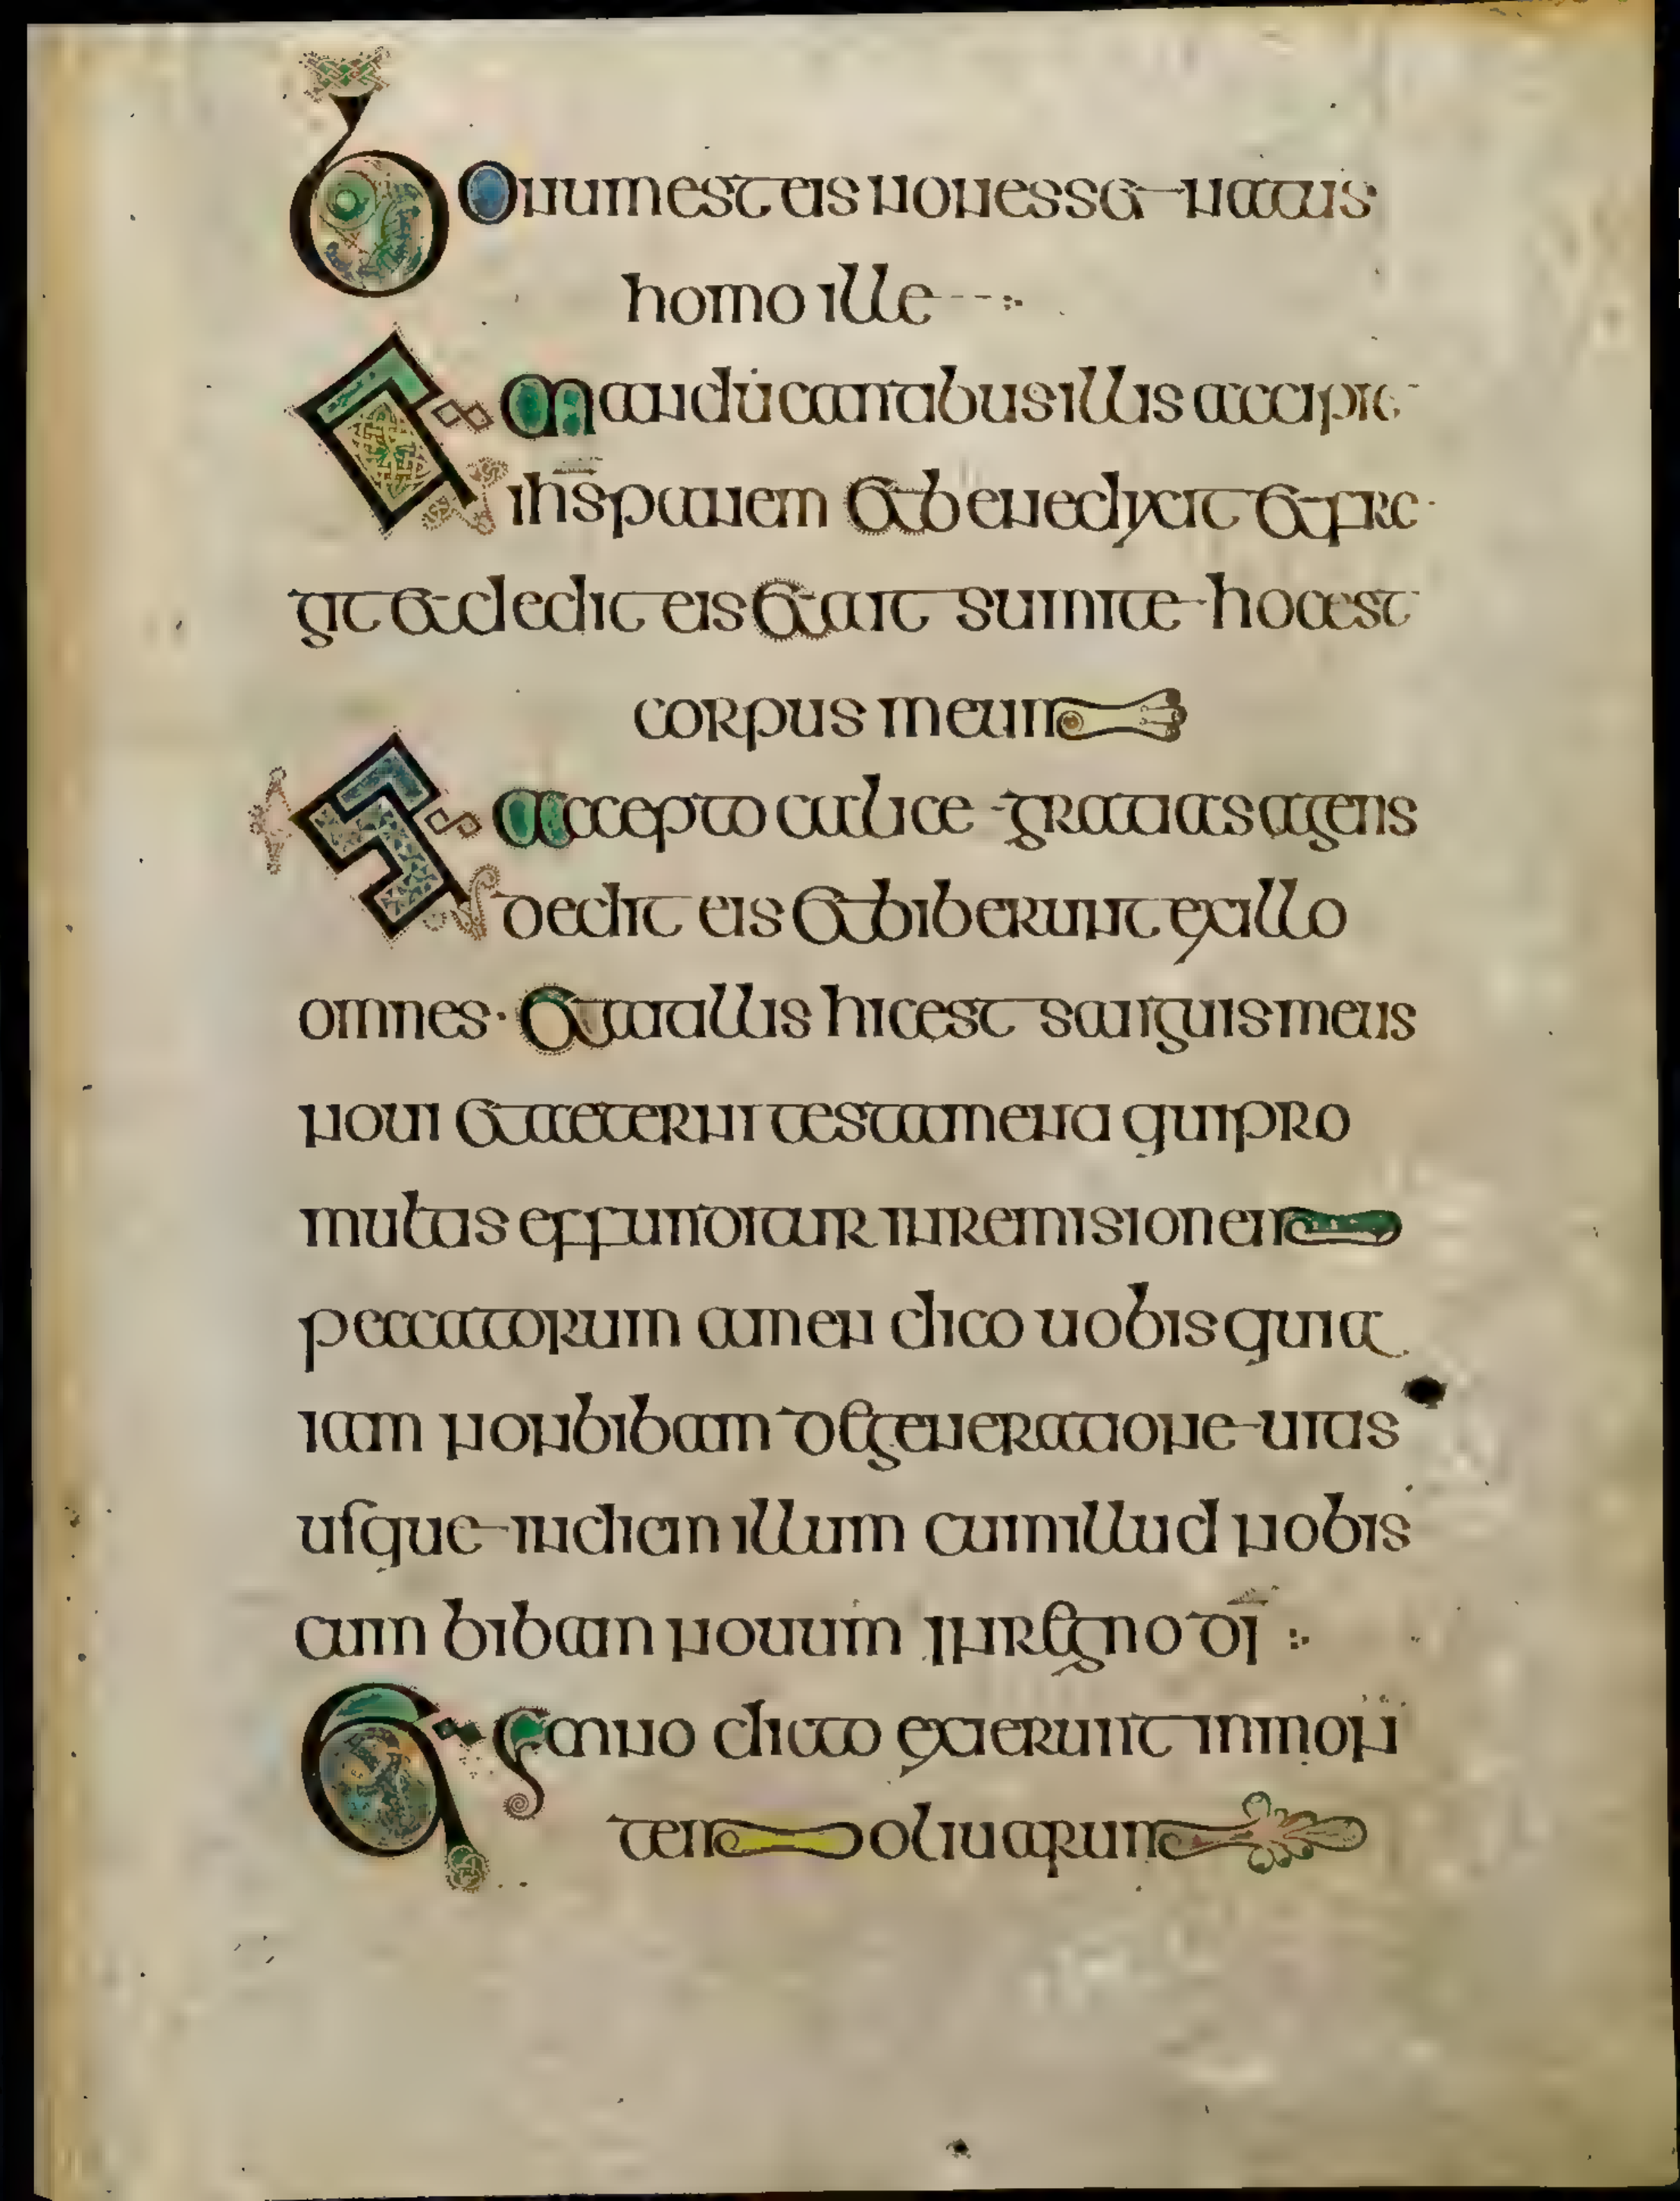 Bonum est eis non esse natus
homo ille
Et manducantibus illis accipit
ihs panem et benedixit et fre
git et dedit eis et ait sumite hoc est
corpus meum
Et accepto calice gratias agens
dedit eis et biberunt ex illo
omnes · et ait illis hic est sanguis meus
noui et aeterni testamenti qui pro
multis effunditur in remisionem
peccatorum amen dico uobis quia
iam non bibam de generatione uitis
usque in diem illum cum illud uobis
cum bibam nouum in regno di
Et ymno dicto exierunt in mon
tem oliuarum